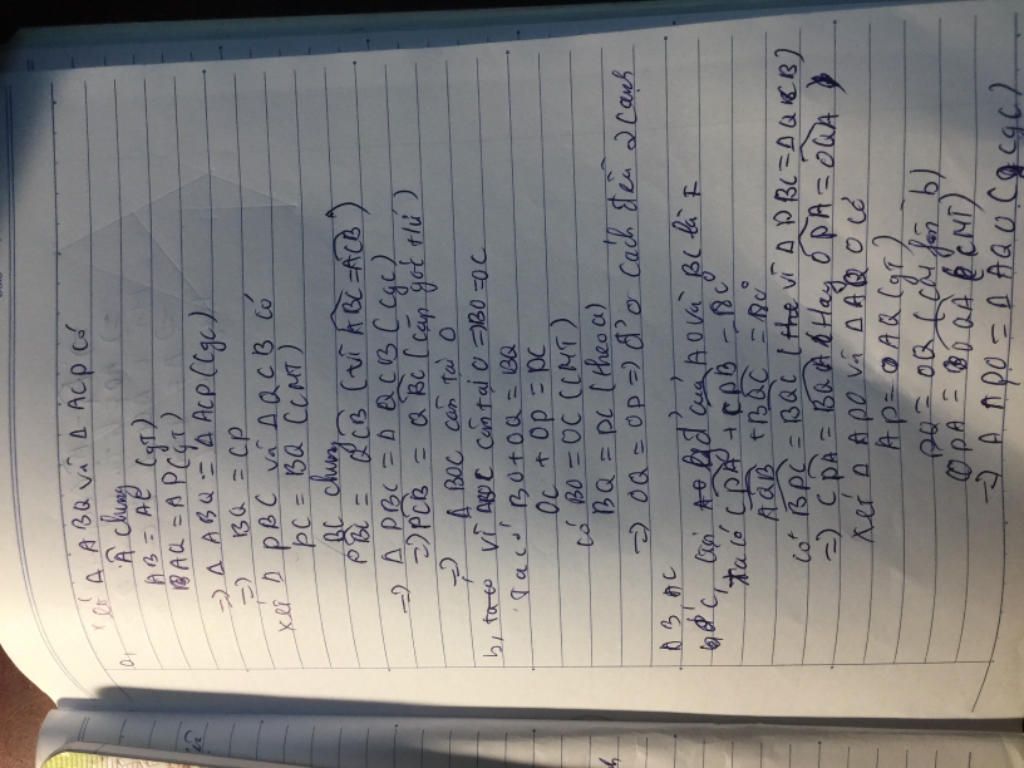 a, Xét Δ ABQ và Δ ACP có
Â chung
AB = AC (gt)
AQ = AP (gt)
=> Δ ABQ = Δ ACP (cgc)
=> BQ = CP
Xét Δ PBC và Δ QCB có
PC = BQ (CMT)
BC chung
PBC = QCB (vì ABC = ACB)
=> Δ PBC = Δ QCB (cgc)
=> PCB = QBC (cặp góc t+ứ)
=> Δ BOC cân tại O
b, ta có vì ΔBOC cân tại O => BO = OC
Ta có BO + OQ = BQ
OC + OP = PC
có BO = OC (CMT)
BQ = PC (theo a)
=> OQ = OP => O cách đều 2 cạnh
AB, AC
c, Gọi của AO và BC là I
Ta có CPA + CPB = 180
AQB + BQC = 180
có BPC = BQC (vì Δ PBC = Δ QCB)
=> CPA = BQA (Hay OPA = OQA)
Xét Δ APO và Δ AQO có
AP = AQ (gt)
PO = OQ (CM phần b)
OPA = OQA (CMT)
=> Δ APO = Δ AQO (cgc)